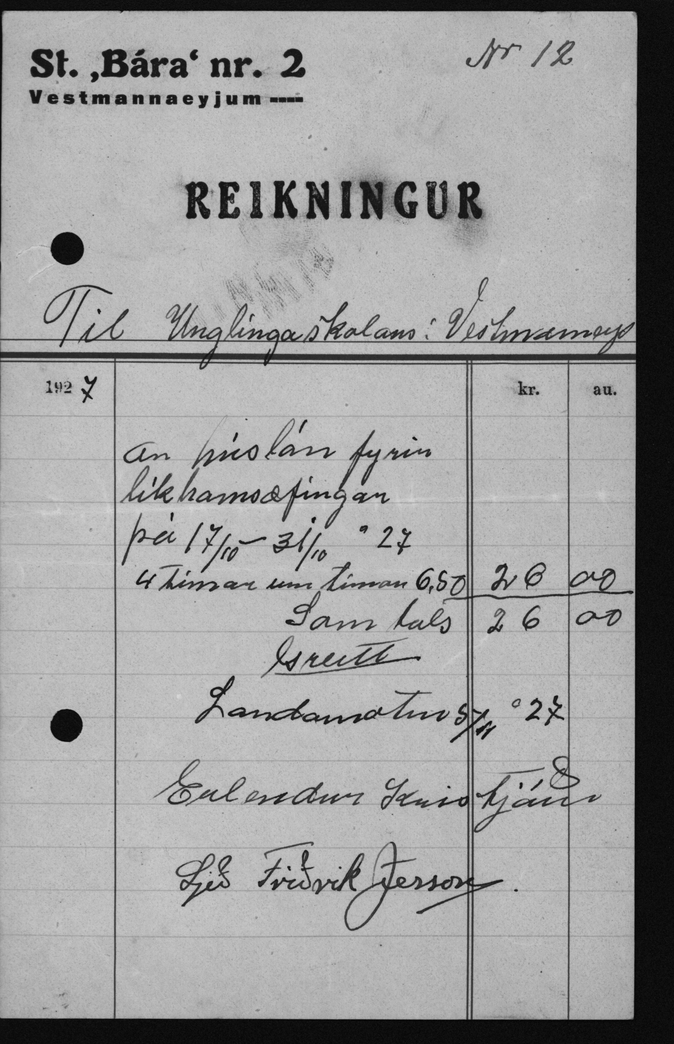 St. ‚Bára‘ nr. 2
Nr 12
Vestmannaeyjum
REIKNINGUR
Til Unglingaskolans: Vestmanneyj
1927
kr.
au.
an húslán fyrir
likhamsæfingar
þá 17/10 – 31/10 ° 27
4 timar um timan 6,50 26 00
Sam tals 26 00
Greitt
Landamotum 5/11 ° 27
Erlendur Kristjáns
Sjeð Friðrik Jesson.